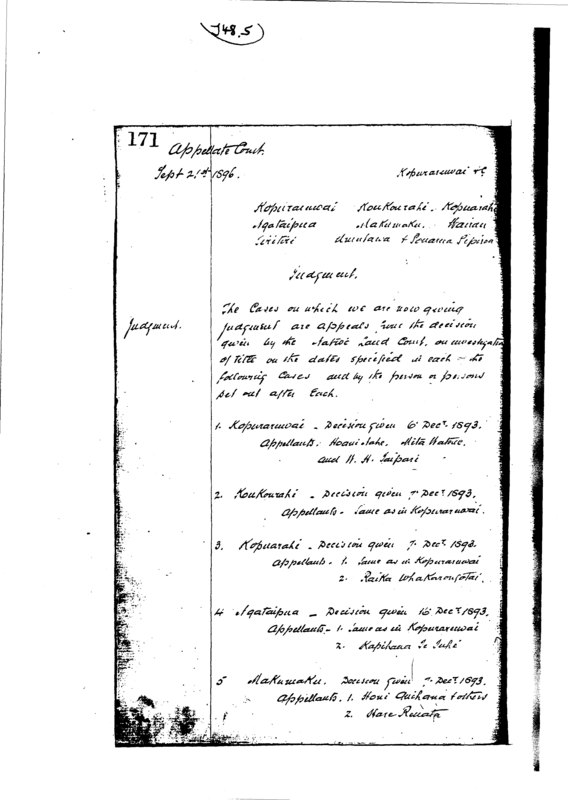 J48.5
171
Appellate Court.
Sept 21st 1896.
Kopuraruwai &c
Kopuraruwai Koukourahi. Kopuarahi
Ngataipua Makumaku. Wairau
Judgment.
Judgment.
The Cases on which we are now giving
judgment are appeals from the decision
given by the Native Land Court, on investigation
of title on the dates specified in each the
following Cases and by the person or persons
set out after each.
1. Kopuraruwai - Decision given 6 Decr. 1893.
Appellants. Hoani Nahe. Mita Watene.
and W. H. Taipari
2. Koukourahi - Decision given 7 Decr 1893.
Appellants - Same as in Kopuraruwai.
3. Kopuarahi - Decision given 7 Decr 1893.
Appellants - 1. Same as in Kopuraruwai
2. Raika Whakarongotai.
4 Ngataipua - Decision given 16 Decr 1893.
Appellants - 1. Same as in Kopuraruwai
2. Kapihana Te Tuhi
5 Makumaku. Decision given 7 Decr 1893.
Appellants. 1. Honi & others
2. Hare Renata